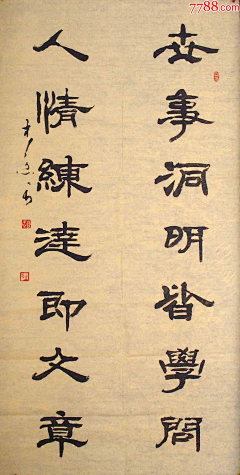 7788.com
世事洞明皆學問
人情練達即文章